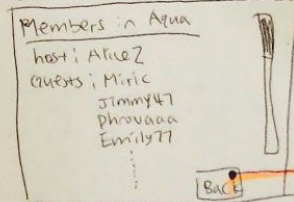 Members in Aqua
host; Alice2
Guests; Miric
Jimmy47
Phrovaaa
Emily77
Back